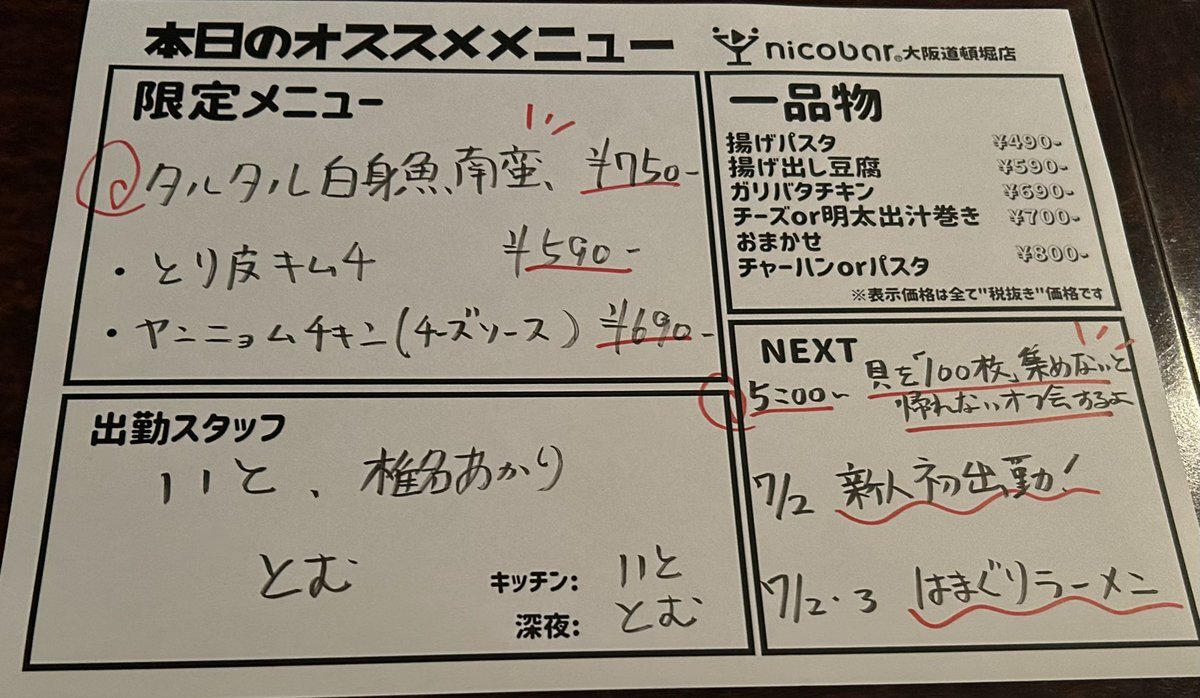 本日のオススメメニュー
nicobar® 大阪道頓堀店
限定メニュー
タルタル白身魚南蛮、 ¥750-
・とり皮キムチ ¥590-
・ヤンニョムチキン(チーズソース) ¥690-
一品物
揚げパスタ ¥490-
揚げ出し豆腐 ¥590-
ガリバタチキン ¥690-
チーズor明太出汁巻き ¥700-
おまかせ
チャーハンorパスタ ¥800-
※表示価格は全て"税抜き"価格です
出勤スタッフ
いと、椎名あかり
とむ
キッチン: いと
深夜: とむ
NEXT
5:00~ 貝を「100枚」集めないと
帰れないオフ会するよ
7/2 新人初出勤!
7/2・3 はまぐりラーメン